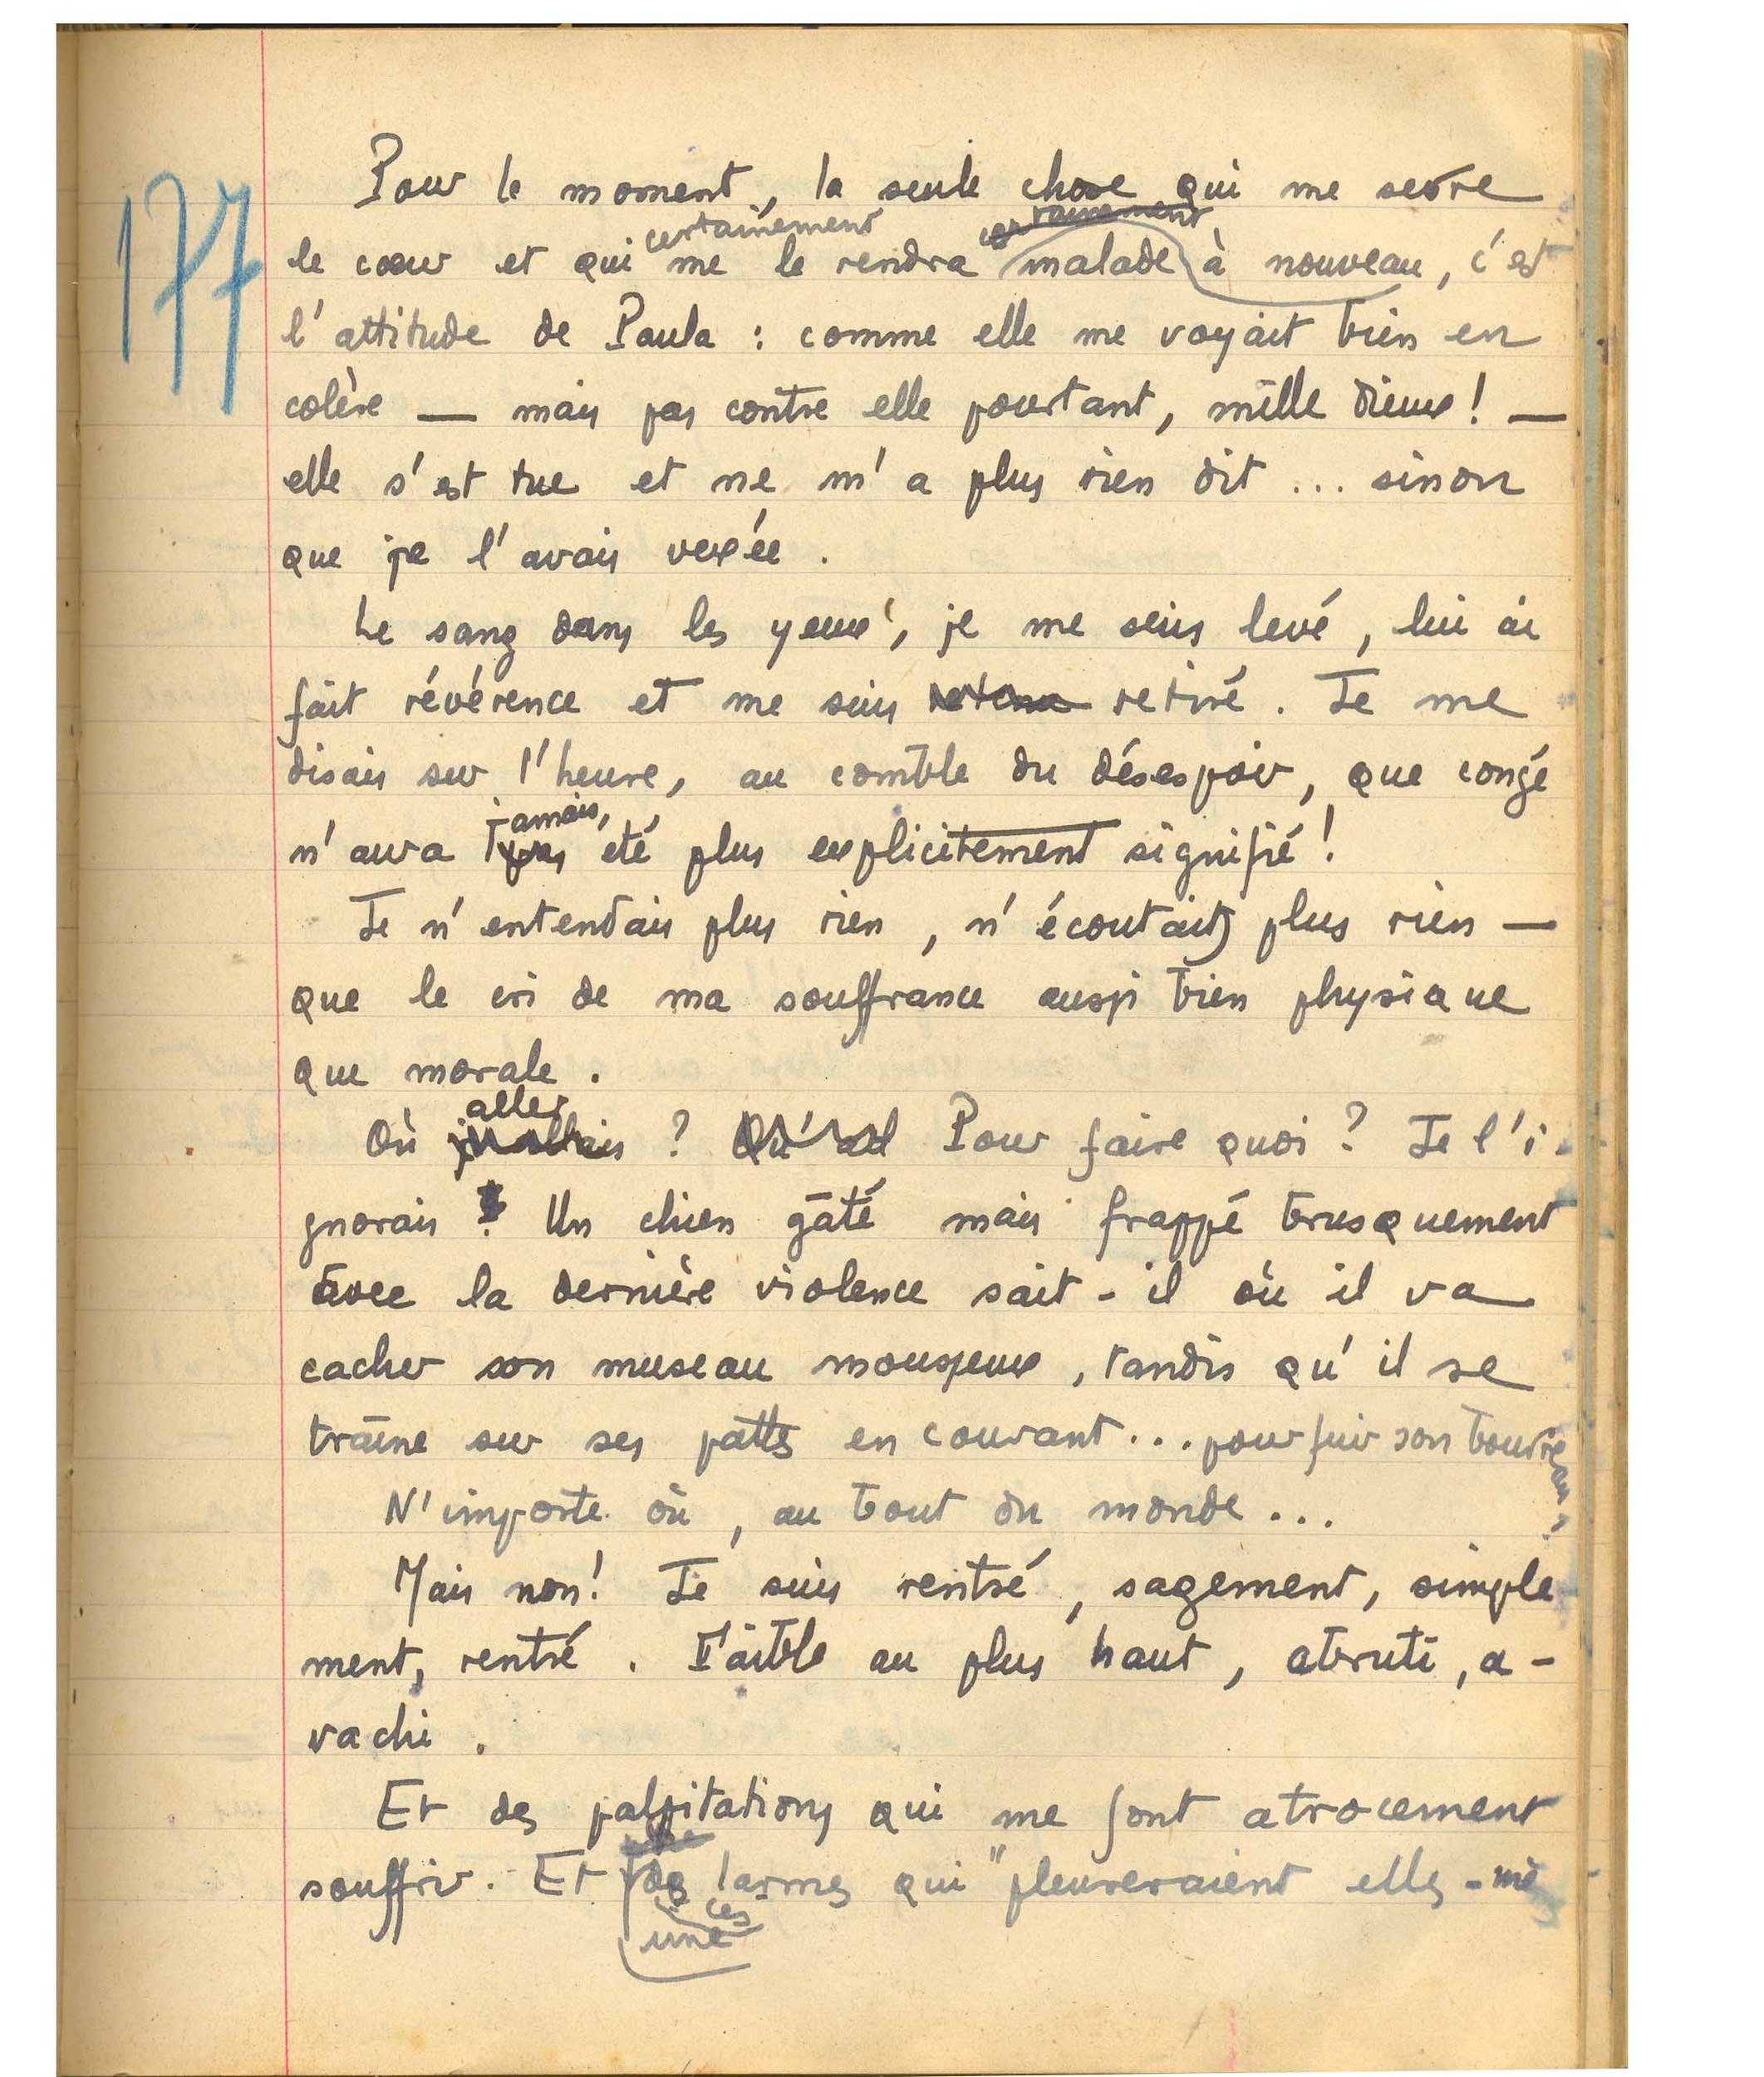 177
Pour le moment, la seule chose qui me serre
certainement certainement
le cœur et qui me le rendra malade à nouveau, c'est
l'attitude de Paula : comme elle me voyait bien en
colère — mais pas contre elle pourtant, mille dieux ! —
elle s'est tue et ne m'a plus rien dit ... sinon
que je l'avais vexée.
Le sang dans les yeux, je me suis levé, lui ai
fait révérence et me suis retiré. Je me
disais sur l'heure, au comble du désespoir, que congé
jamais,
n'aura pas été plus explicitement signifié !
Je n'entendais plus rien, n'écoutais plus rien —
que le cri de ma souffrance aussi bien physique
que morale.
aller
Où j'allais ? Pour faire quoi ? Je l'i-
gnorais ! Un chien gâté mais frappé brusquement
avec la dernière violence sait-il où il va
cacher son museau mousseux, tandis qu'il se
traîne sur ses pattes en courant ... pour fuir son bourreau ?
N'importe où, au bout du monde ...
Mais non ! Je suis rentré, sagement, simple
ment, rentré. Faible au plus haut, abruti, a-
vachi.
Et des palpitations qui me font atrocement
souffrir. Et des larmes qui "pleureraient elles-mê
ces
une